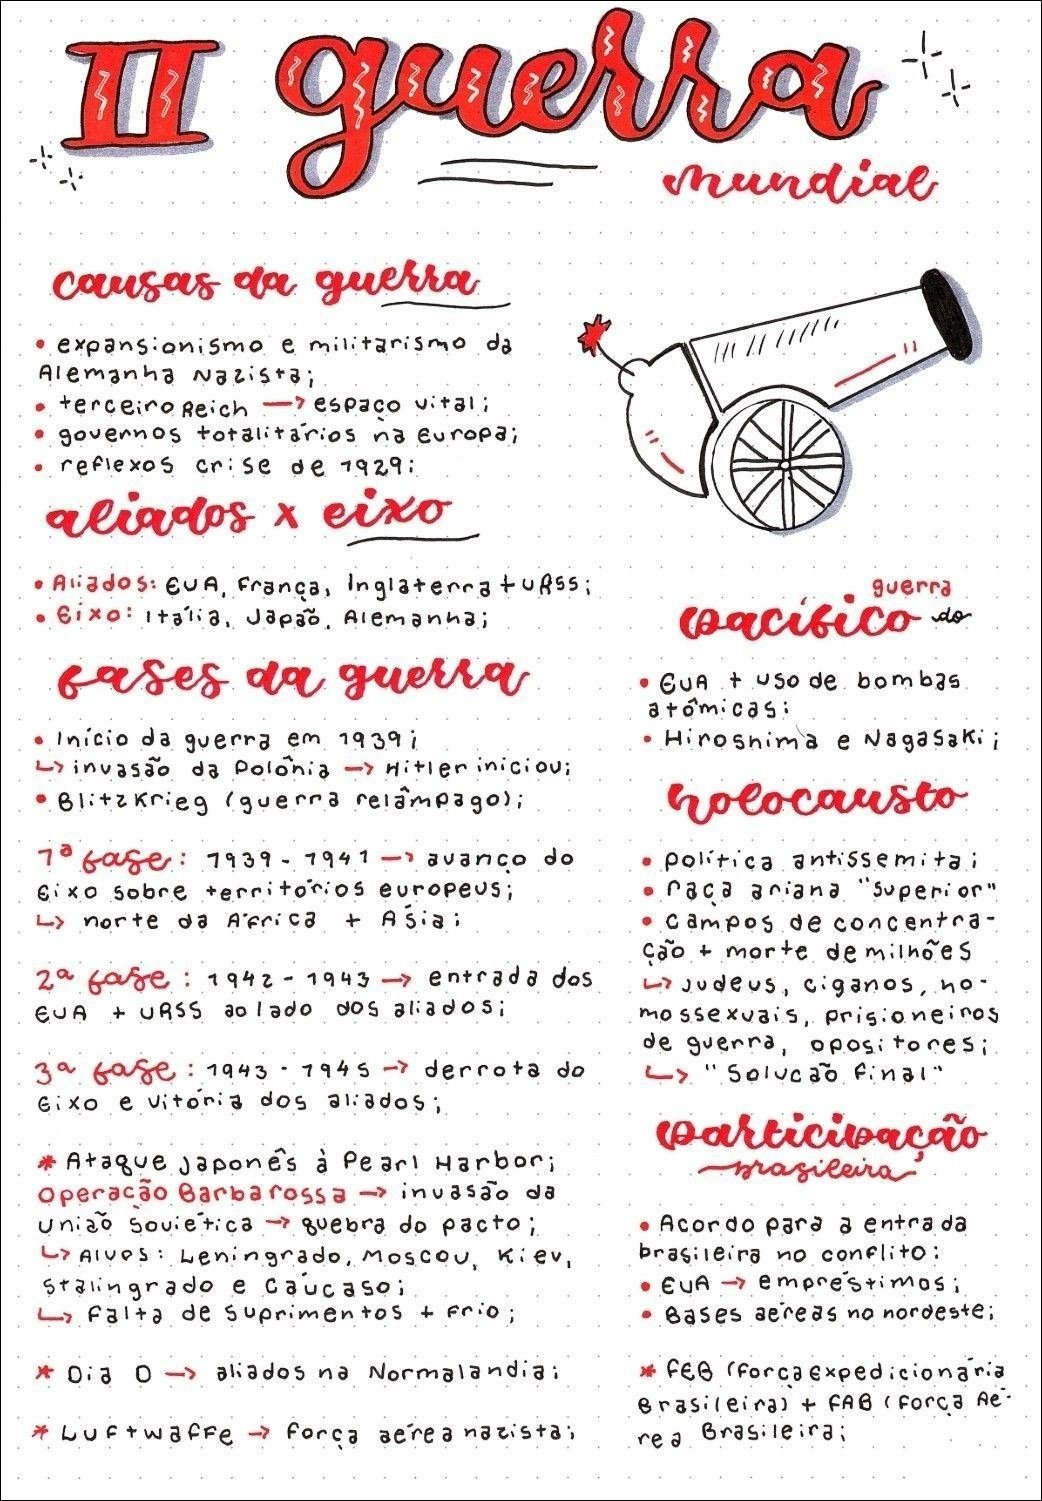 II guerra
mundial
causas da guerra
• expansionismo e militarismo da
Alemanha Nazista;
• terceiro Reich → espaço vital;
• governos totalitários na Europa;
• reflexos crise de 1929;
aliados x eixo
• Aliados: EUA, França, Inglaterra + URSS;
• Eixo: Itália, Japão, Alemanha;
fases da guerra
• Início da guerra em 1939;
↳ invasão da Polônia → Hitler iniciou;
• Blitzkrieg (guerra relâmpago);
1ª fase: 1939 - 1941 → avanço do
Eixo sobre territórios europeus;
↳ norte da África + Ásia;
2ª fase: 1942 - 1943 → entrada dos
EUA + URSS ao lado dos aliados;
3ª fase: 1943 - 1945 → derrota do
Eixo e vitória dos aliados;
* Ataque japonês à Pearl Harbor;
Operação Barbarossa → invasão da
União Soviética → quebra do pacto;
↳ Alvos: Leningrado, Moscou, Kiev,
Stalingrado e Cáucaso;
↳ Falta de suprimentos + frio;
* Dia D → aliados na Normalandia;
* Luftwaffe → força aérea nazista;
guerra
do
pacífico
• EUA + uso de bombas
atômicas;
• Hiroshima e Nagasaki;
holocausto
• política antissemita;
• raça ariana "superior"
• campos de concentra-
ção + morte de milhões
↳ judeus, ciganos, ho-
mossexuais, prisioneiros
de guerra, opositores;
↳ "Solução final"
participação
brasileira
• Acordo para a entrada
brasileira no conflito:
• EUA → empréstimos;
• Bases aéreas no nordeste;
* FEB (Força Expedicionária
Brasileira) + FAB (Força Aé-
rea Brasileira;